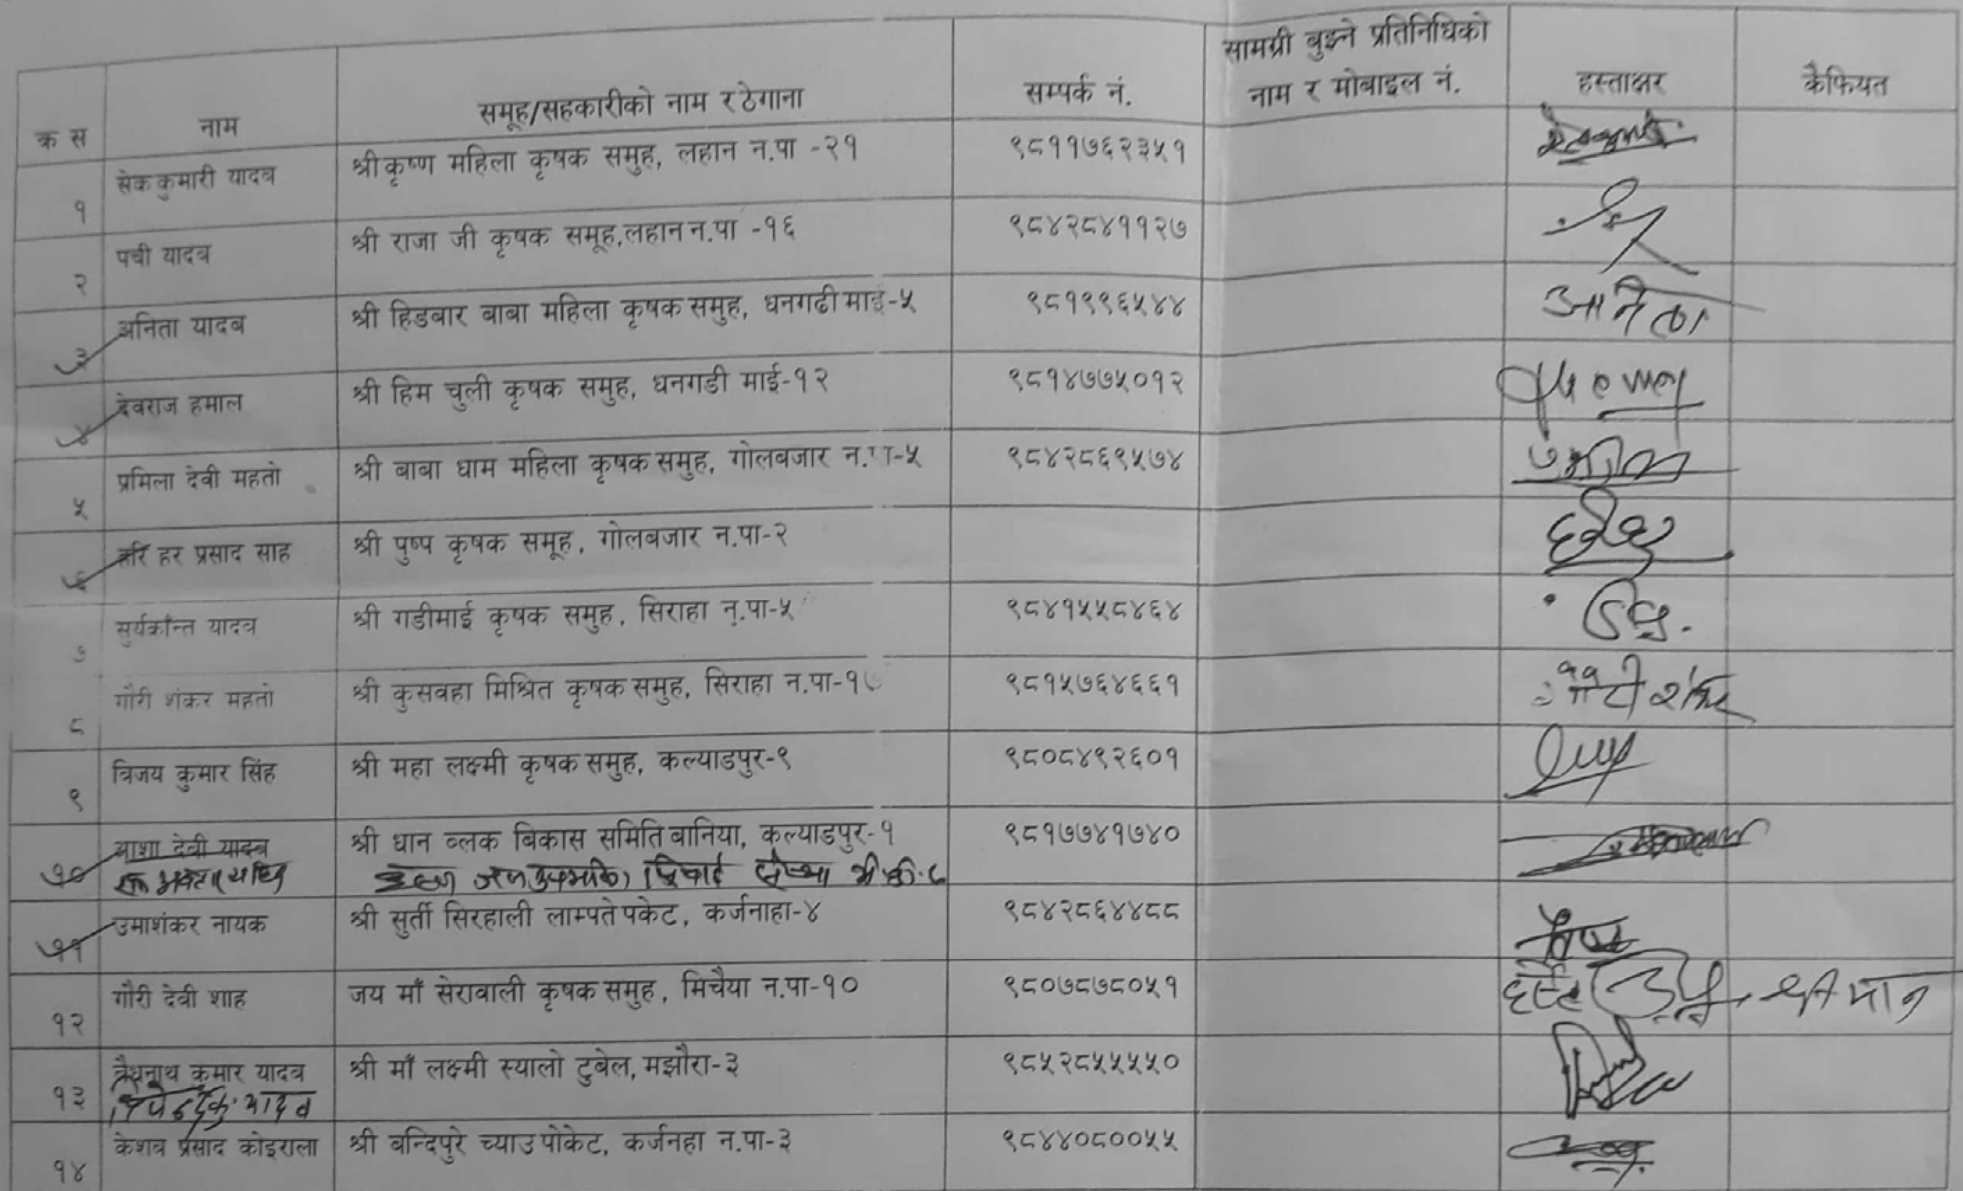 क स नाम समूह/सहकारीको नाम र ठेगाना सम्पर्क नं. सामग्री बुझ्ने प्रतिनिधिको नाम र मोबाइल नं. हस्ताक्षर कैफियत
१ सेक कुमारी यादव श्री कृष्ण महिला कृषक समुह, लहान न.पा -२१ ९८११७६२३५१
२ पची यादव श्री राजा जी कृषक समूह,लहान न.पा -१६ ९८४२८४११२७
३ अनिता यादव श्री हिडबार बाबा महिला कृषक समुह, धनगढी माई-५ ९८१९९६५४४
४ देवराज हमाल श्री हिम चुली कृषक समुह, धनगडी माई-१२ ९८१४७७५०१२
५ प्रमिला देवी महतो श्री बाबा धाम महिला कृषक समुह, गोलबजार न.पा-५ ९८४२८६९५७४
६ हरि हर प्रसाद साह श्री पुष्प कृषक समूह, गोलबजार न.पा-२
७ सुर्यकान्त यादव श्री गडीमाई कृषक समुह, सिराहा न.पा-५ ९८४१५५८४६४
८ गौरी शंकर महतो श्री कुसवहा मिश्रित कृषक समुह, सिराहा न.पा-१७ ९८१५७६४६६१ गौरी शंकर
९ विजय कुमार सिंह श्री महा लक्ष्मी कृषक समुह, कल्याडपुर-९ ९८०८४९२६०१
१० आशा देवी यादव श्री धान ब्लक बिकास समिति बानिया, कल्याडपुर-१ ९८१७७४१७४०
११ उमाशंकर नायक श्री सुर्ती सिरहाली लाम्पते पकेट, कर्जनाहा-४ ९८४२८६४४८८
१२ गौरी देवी शाह जय माँ सेरावाली कृषक समुह, मिचैया न.पा-१० ९८०७८७८०५१ श्रीमान
१३ बैधनाथ कुमार यादव श्री माँ लक्ष्मी स्यालो टुबेल, मझौरा-३ ९८५२८५५५५०
१४ केशव प्रसाद कोइराला श्री बन्दिपुरे च्याउ पोकेट, कर्जनहा न.पा-३ ९८४४०८००५५